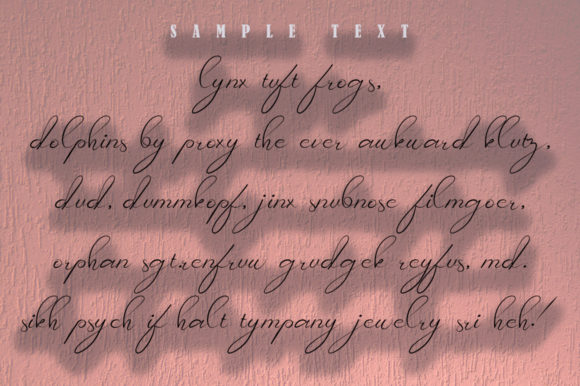 SAMPLE TEXT
lynx tuft frogs,
dolphins by proxy the ever awkward klutz,
dud, dummkopf, jinx snubnose filmgoer,
orphan sgt.renfruw grudgek reyfus, md.
sikh psych if halt tympany jewelry sri heh!